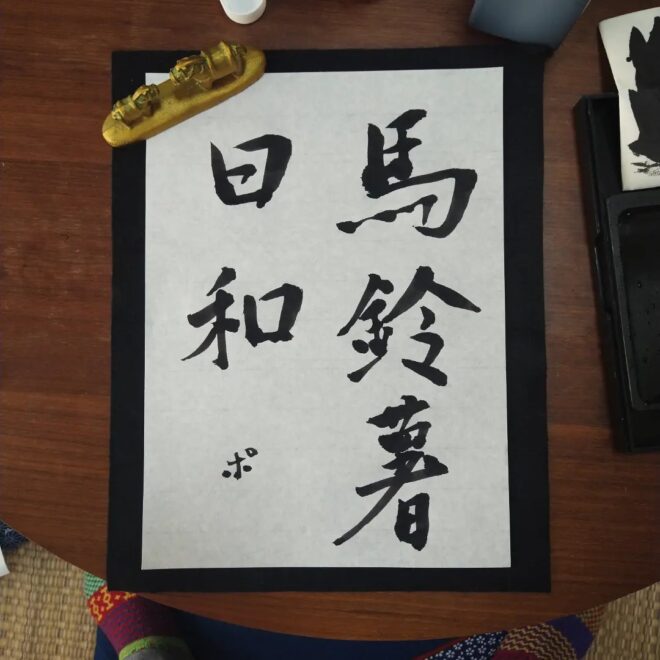 馬鈴薯
日和
ポ